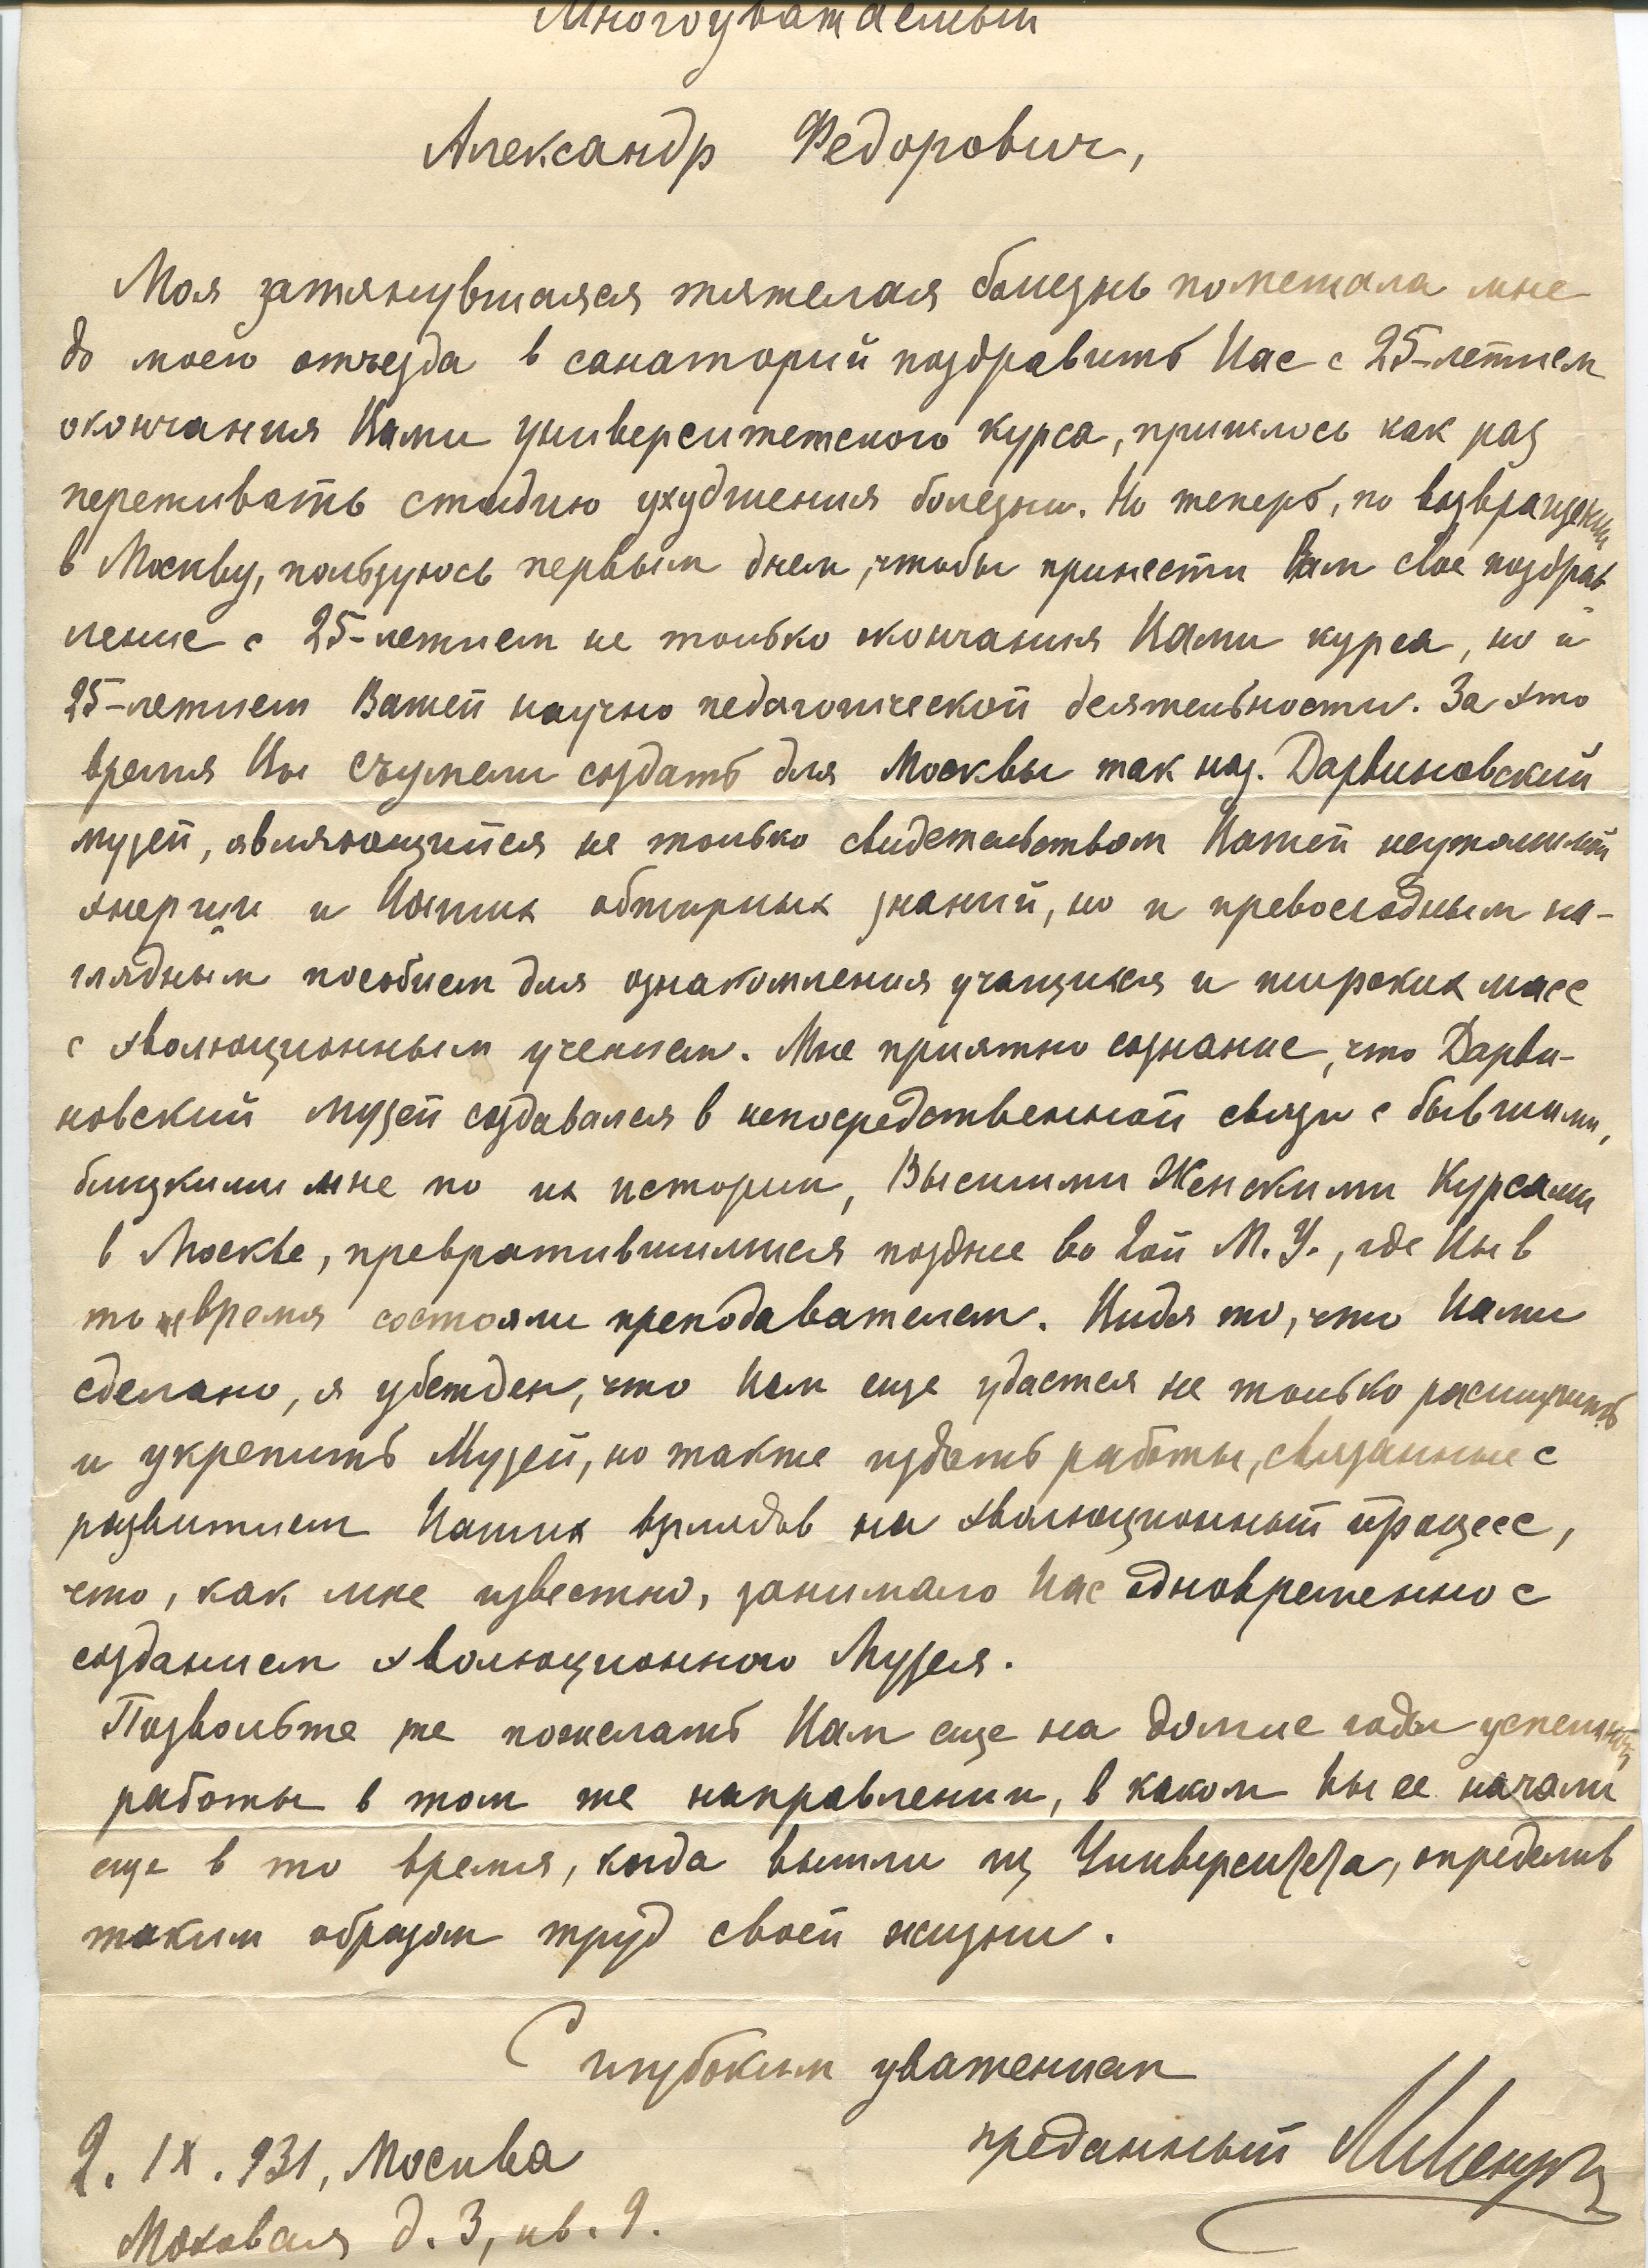 Многоуважаемый
Александр Федорович,
Моя затянувшаяся тяжелая болезнь помешала мне
до моего отъезда в санаторий поздравить Вас с 25-летием
окончания Вами университетского курса, пришлось как раз
переживать стадию ухудшения болезни. Но теперь, по возвращении
в Москву, пользуюсь первым днем, чтобы принести Вам свое поздрав
ление с 25-летием не только окончания Вами курса, но и
25-летием Вашей научно педагогической деятельности. За это
время Вы съумели создать для Москвы так наз. Дарвиновский
музей, являющийся не только свидетельством Вашей неутомимой
энергии и Ваших обширных знаний, но и превосходным на-
глядным пособием для ознакомления учащихся и широких масс
с эволюционным учением. Мне приятно сознание, что Дарви-
новский музей создавался в непосредственной связи с бывшими,
близкими мне по их истории, Высшими Женскими Курсами
в Москве, превратившимися позднее во 2ой М.У., где Вы в
то же время состояли преподавателем. Видя то, что Вами
сделано, я убежден, что Вам еще удастся не только расширить
и укрепить Музей, но также издать работы, связанные с
развитием Ваших взглядов на эволюционный процесс,
что, как мне известно, занимало Вас одновременно с
созданием эволюционного Музея.
Позвольте же пожелать Вам еще на долгие годы успешной
работы в том же направлении, в каком Вы ее начали
еще в то время, когда вышли из Университета, определив
таким образом труд своей жизни.
С глубоким уважением
преданный
2. IX. 931, Москва
Моховая д. 3, кв. 9.